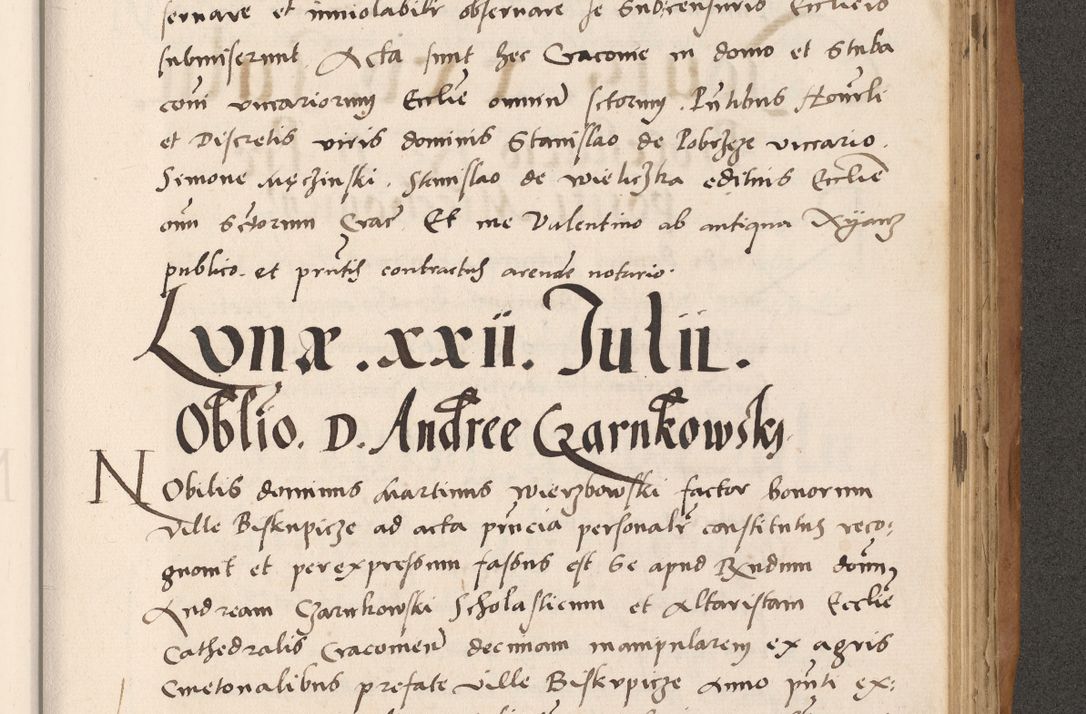 servare et inviolabilr observare se Subcensuris Ecclie
submiserunt Acta sunt hec Cracovie in domo et Stuba
com̄i vicariorum Ecclie omniū sctorum Pn̄tibus Honorli
et Discretis viris dominis Stanislao de Pobrzeze vicario.
Simone Męczinski. Stanislao de Wieliczka edituis Ecclie
om̄i Sctorum Crac̄ Et me Valentino ab antiqua
publico. et prn̄tis contractus arende notario.
Lvnæ .xxii. Julii.
Oblio. D. Andree Czarnkowski
NObilis dominus Martinus Wierzbowski factor bonorum
Ville Biskupicze ad acta prn̄cia personalr̄ constitutus reco:
gnovit et per expressum fassus est se apud Rn̄dum dom̄
Andream Czarnkowski Scholasticum et Altaristam Ecclie
Cathedralis Cracovien̄ decimam manipularem ex agris
Cmetonalibus prefate Ville Biskvpicze Anno pn̄ti ex: